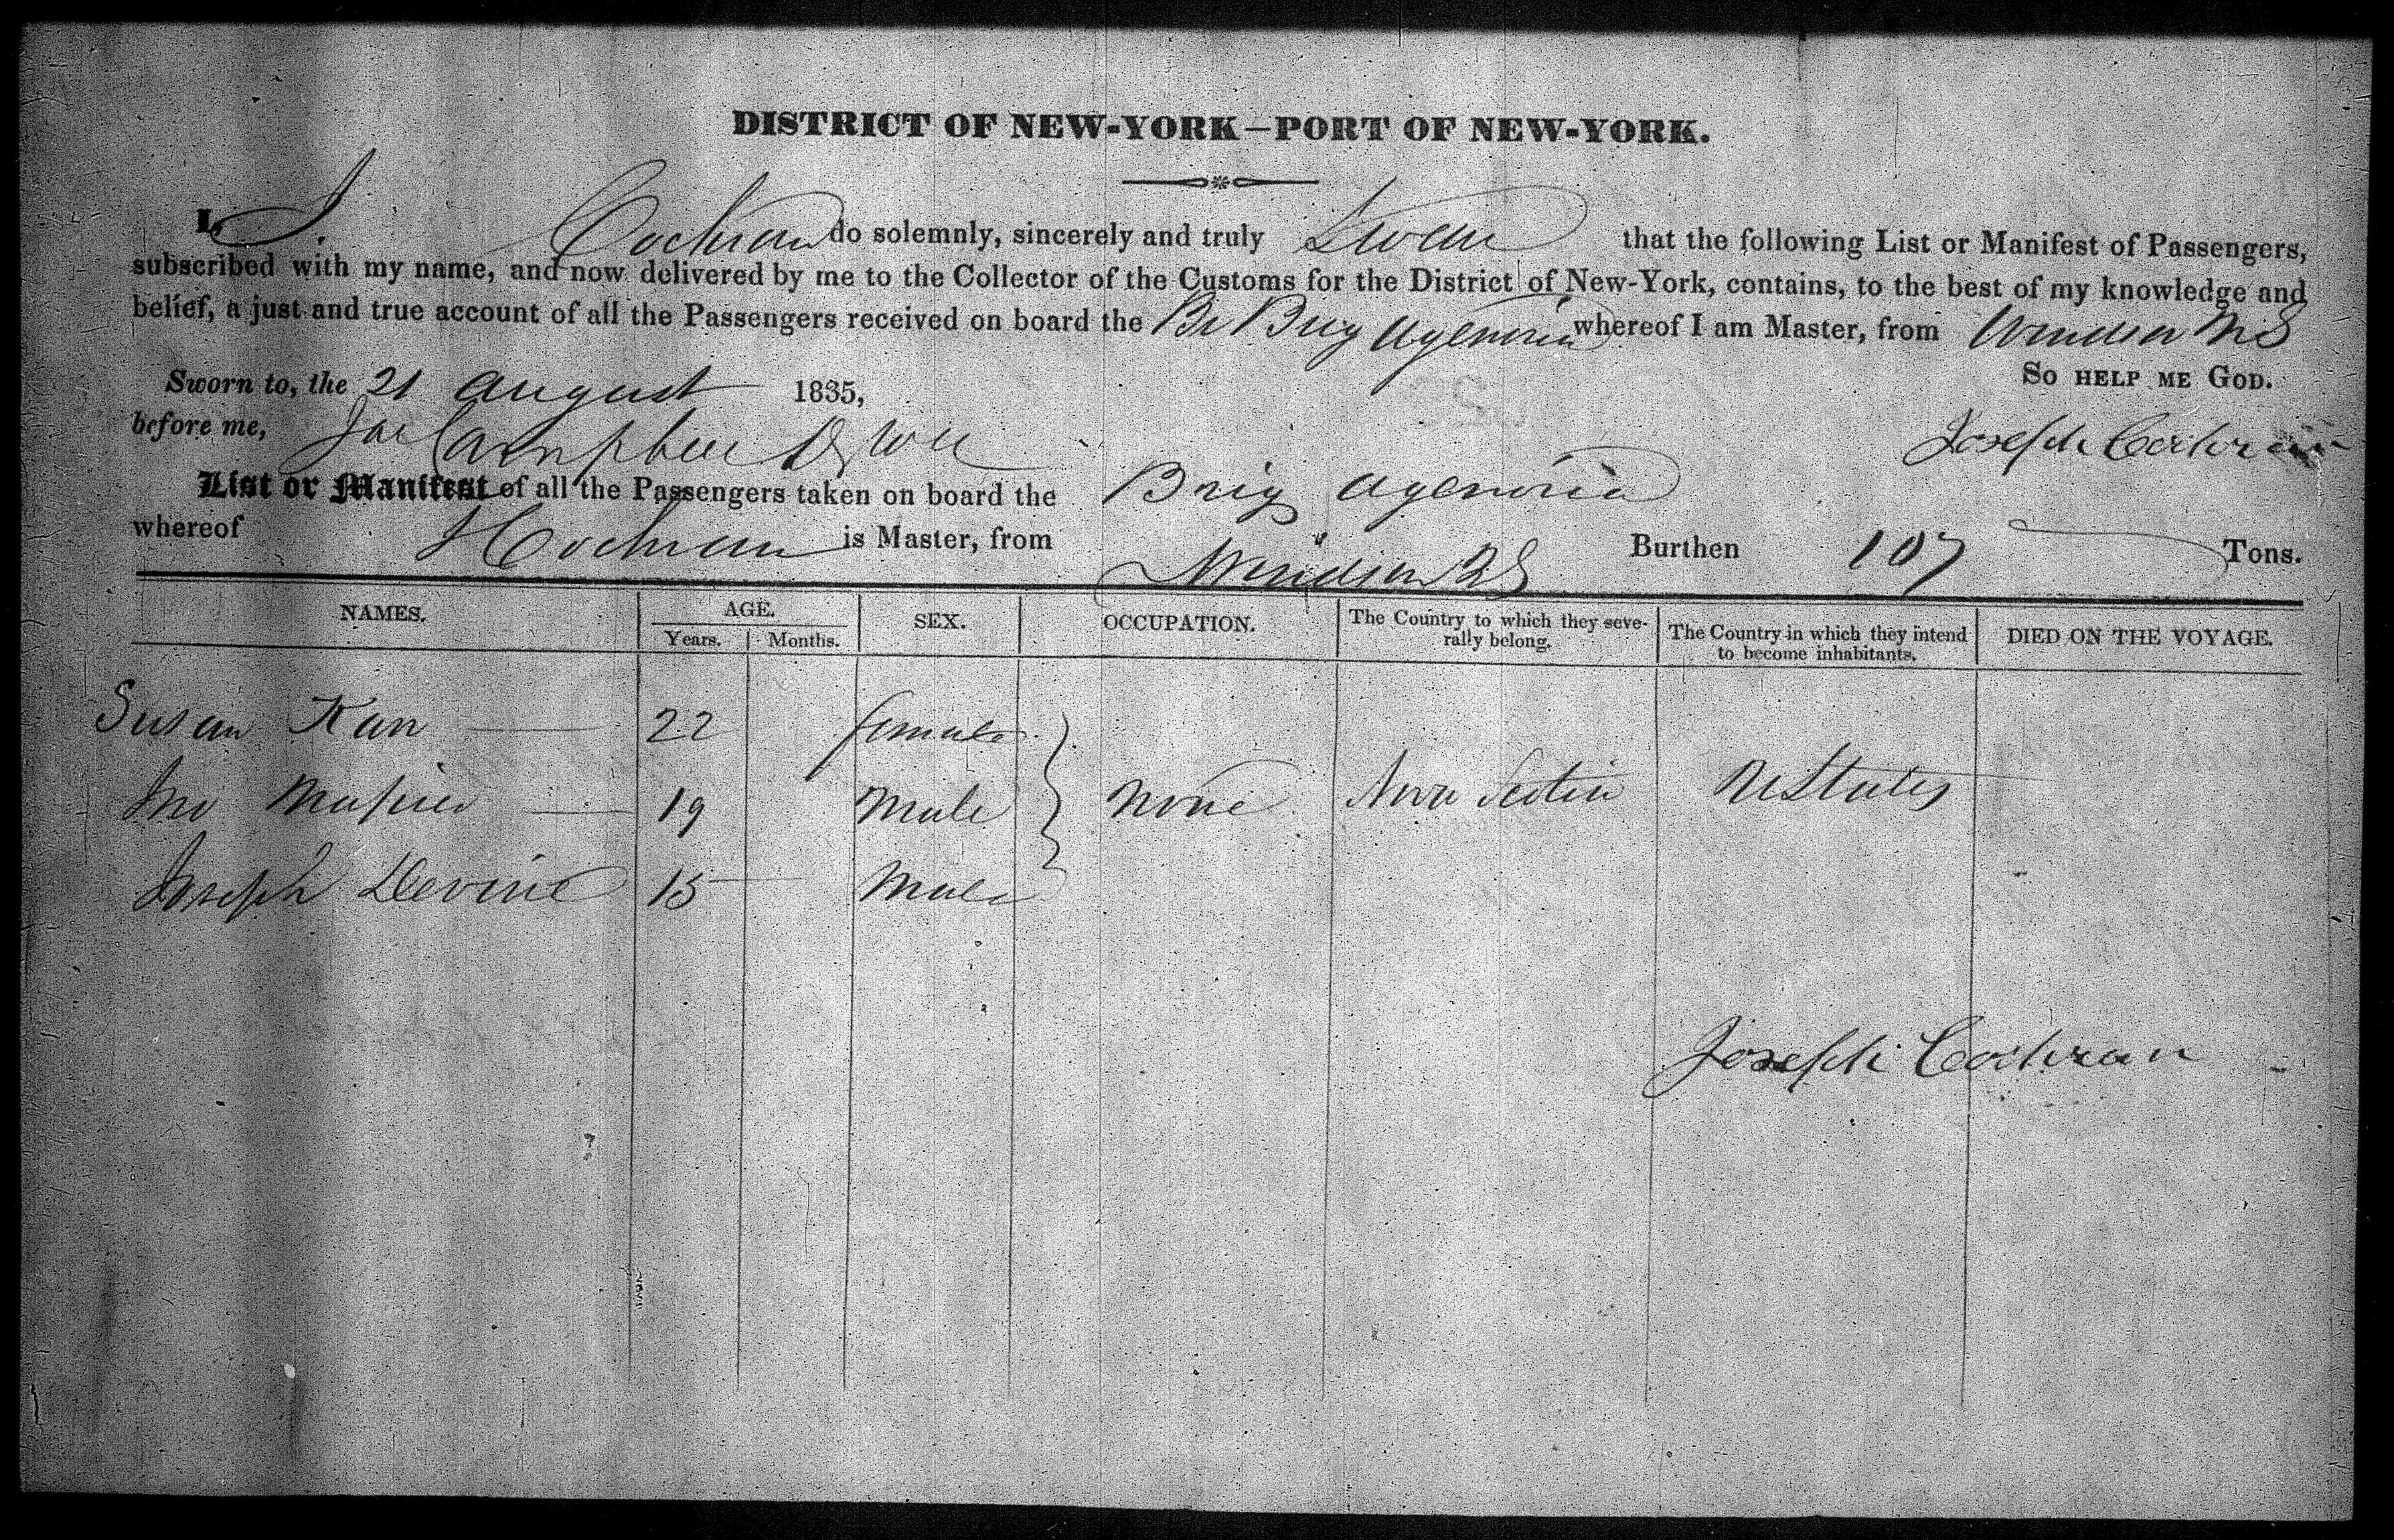 DISTRICT OF NEW-YORK—PORT OF NEW-YORK.
I, J. Cochran do solemnly, sincerely and truly Swear that the following List or Manifest of Passengers,
subscribed with my name, and now delivered by me to the Collector of the Customs for the District of New-York, contains, to the best of my knowledge and
belief, a just and true account of all the Passengers received on board the Br Brig Agenoria whereof I am Master, from Windsor NS
So HELP ME GOD.
Sworn to, the 21 August 1835,
before me, Campbell
Joseph Cochran
List or Manifest of all the Passengers taken on board the Brig Agenoria
whereof Cochran is Master, from Windsor NS Burthen 107 Tons.
NAMES. AGE. SEX. OCCUPATION. The Country to which they seve-rally belong. The Country in which they intend to become inhabitants. DIED ON THE VOYAGE.
Years. Months.
Susan 22 female
Jno 19 Male None Nova Scotia U States
Joseph Devine 15 Male
Joseph Cochran